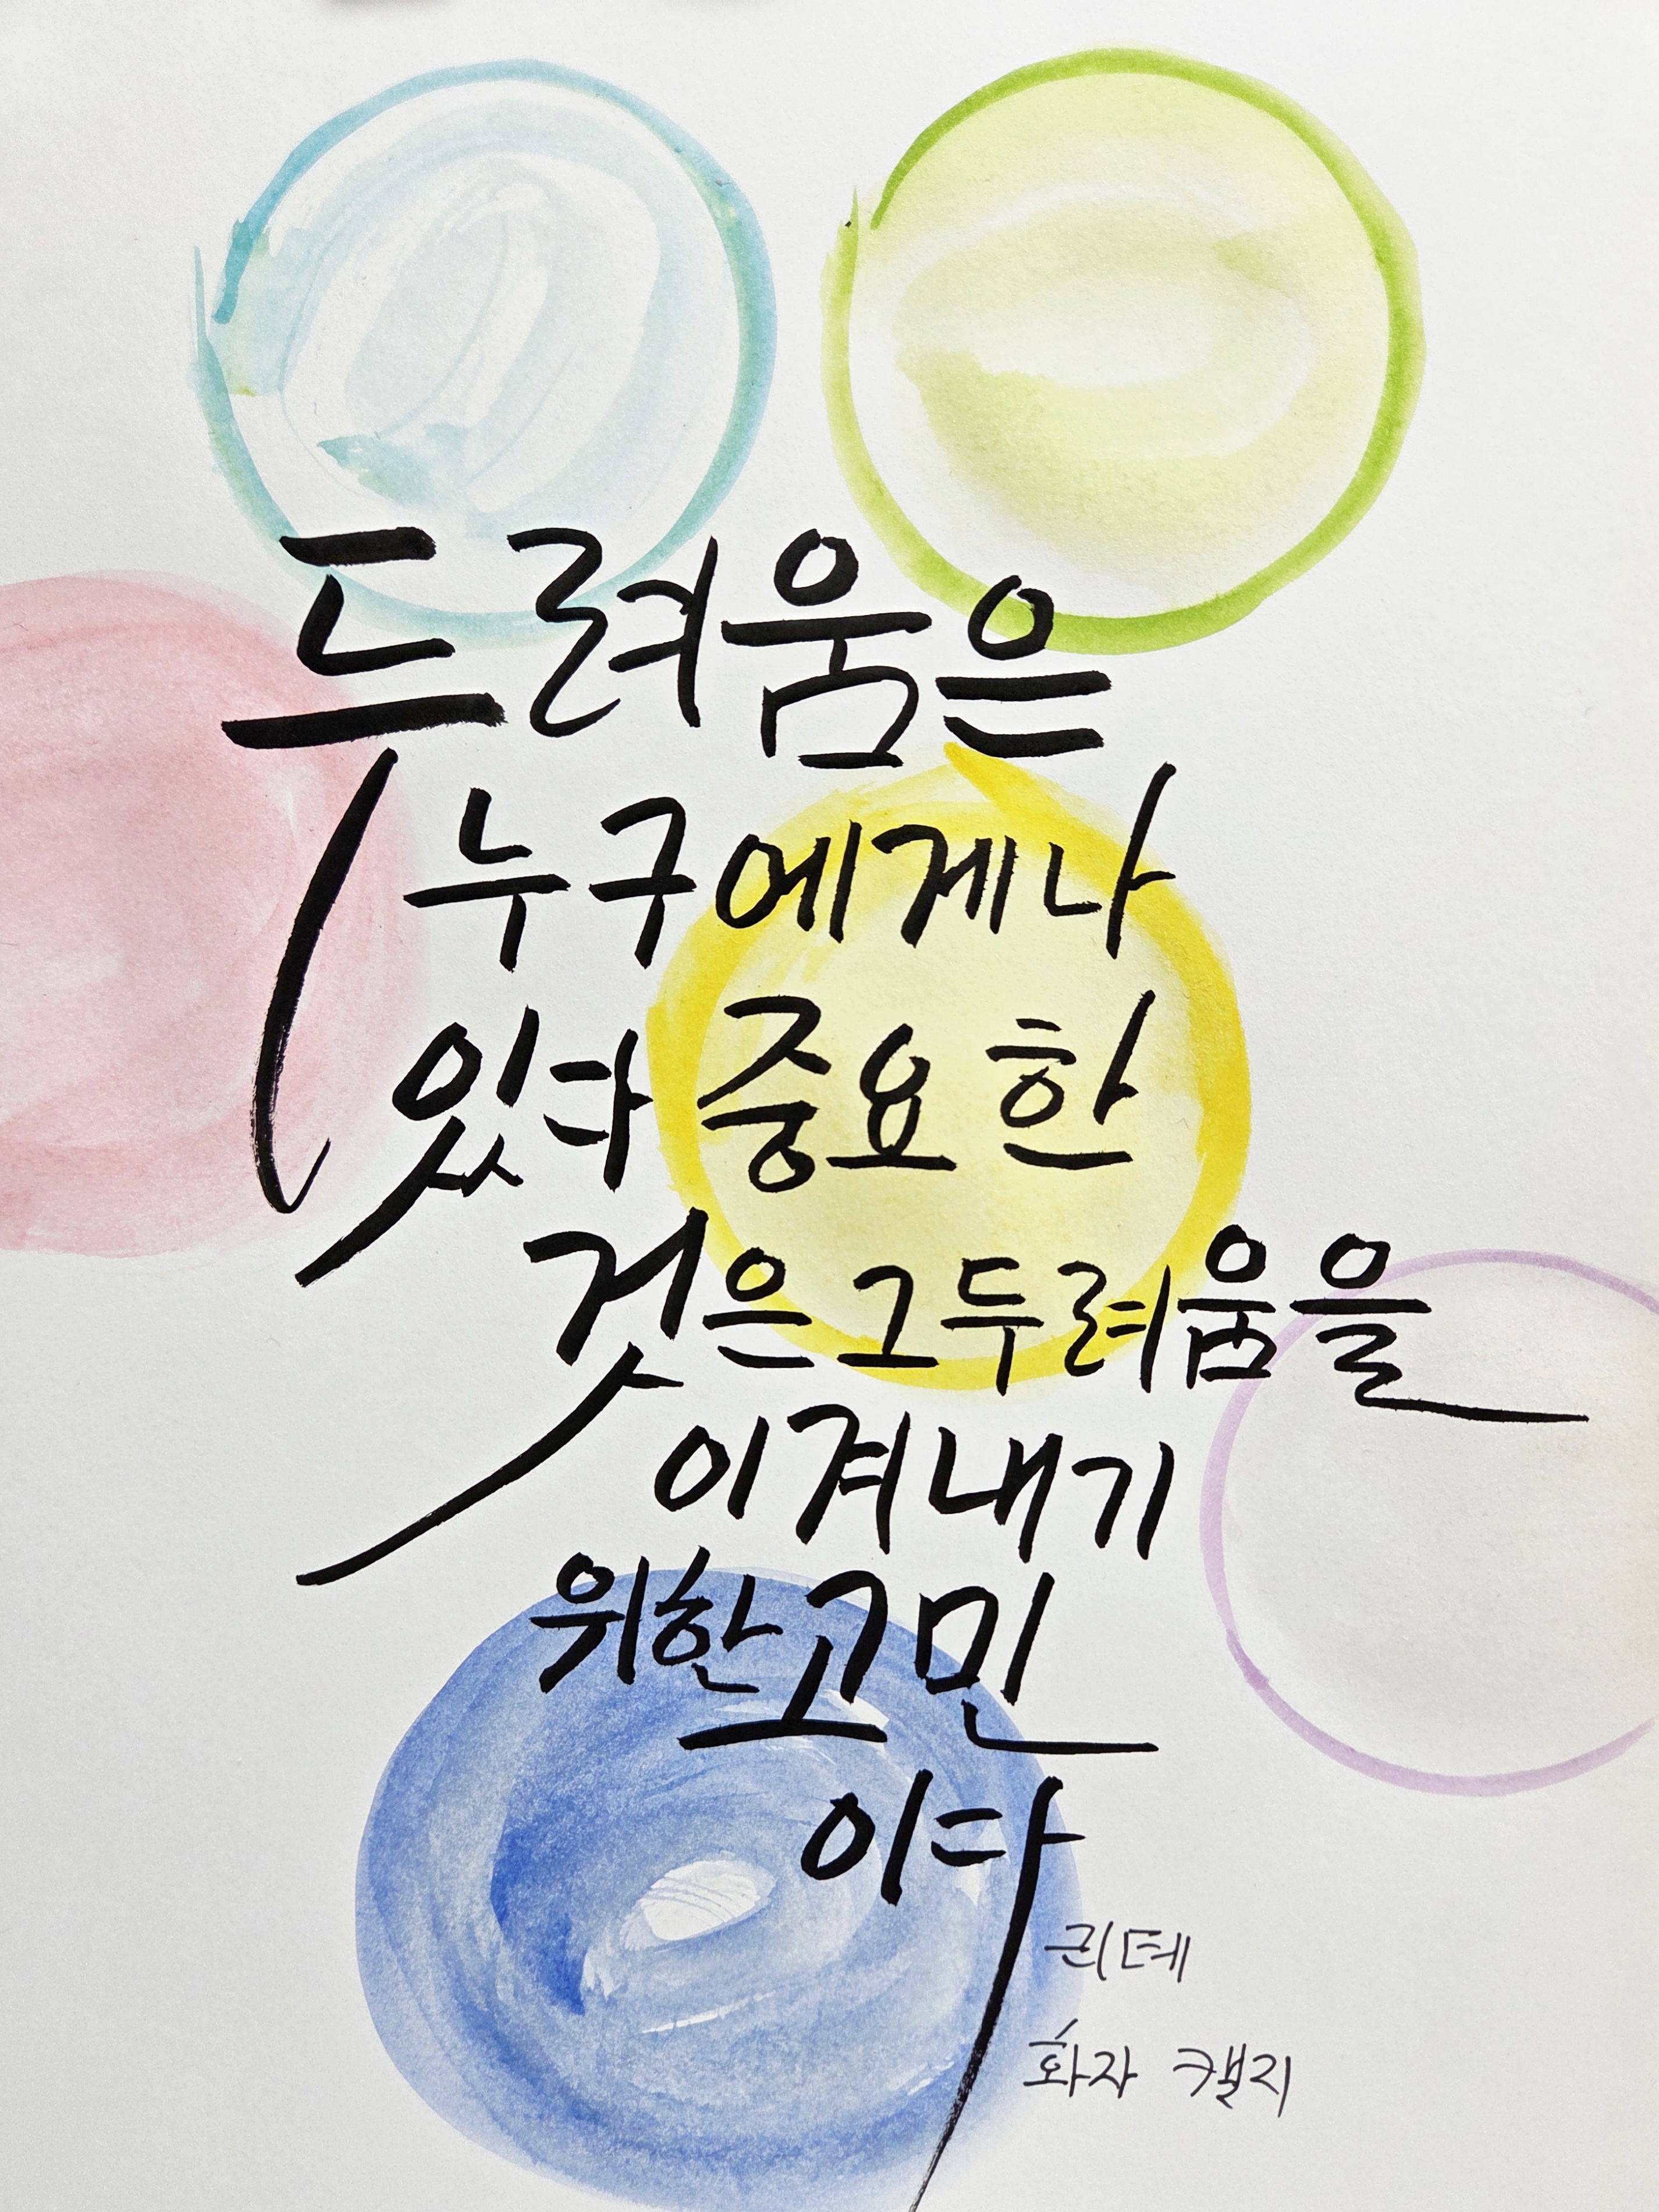 두려움은
누구에게나
있다 중요한
것은 그 두려움을
이겨내기
위한 고민
이다
리테
화자 캘지